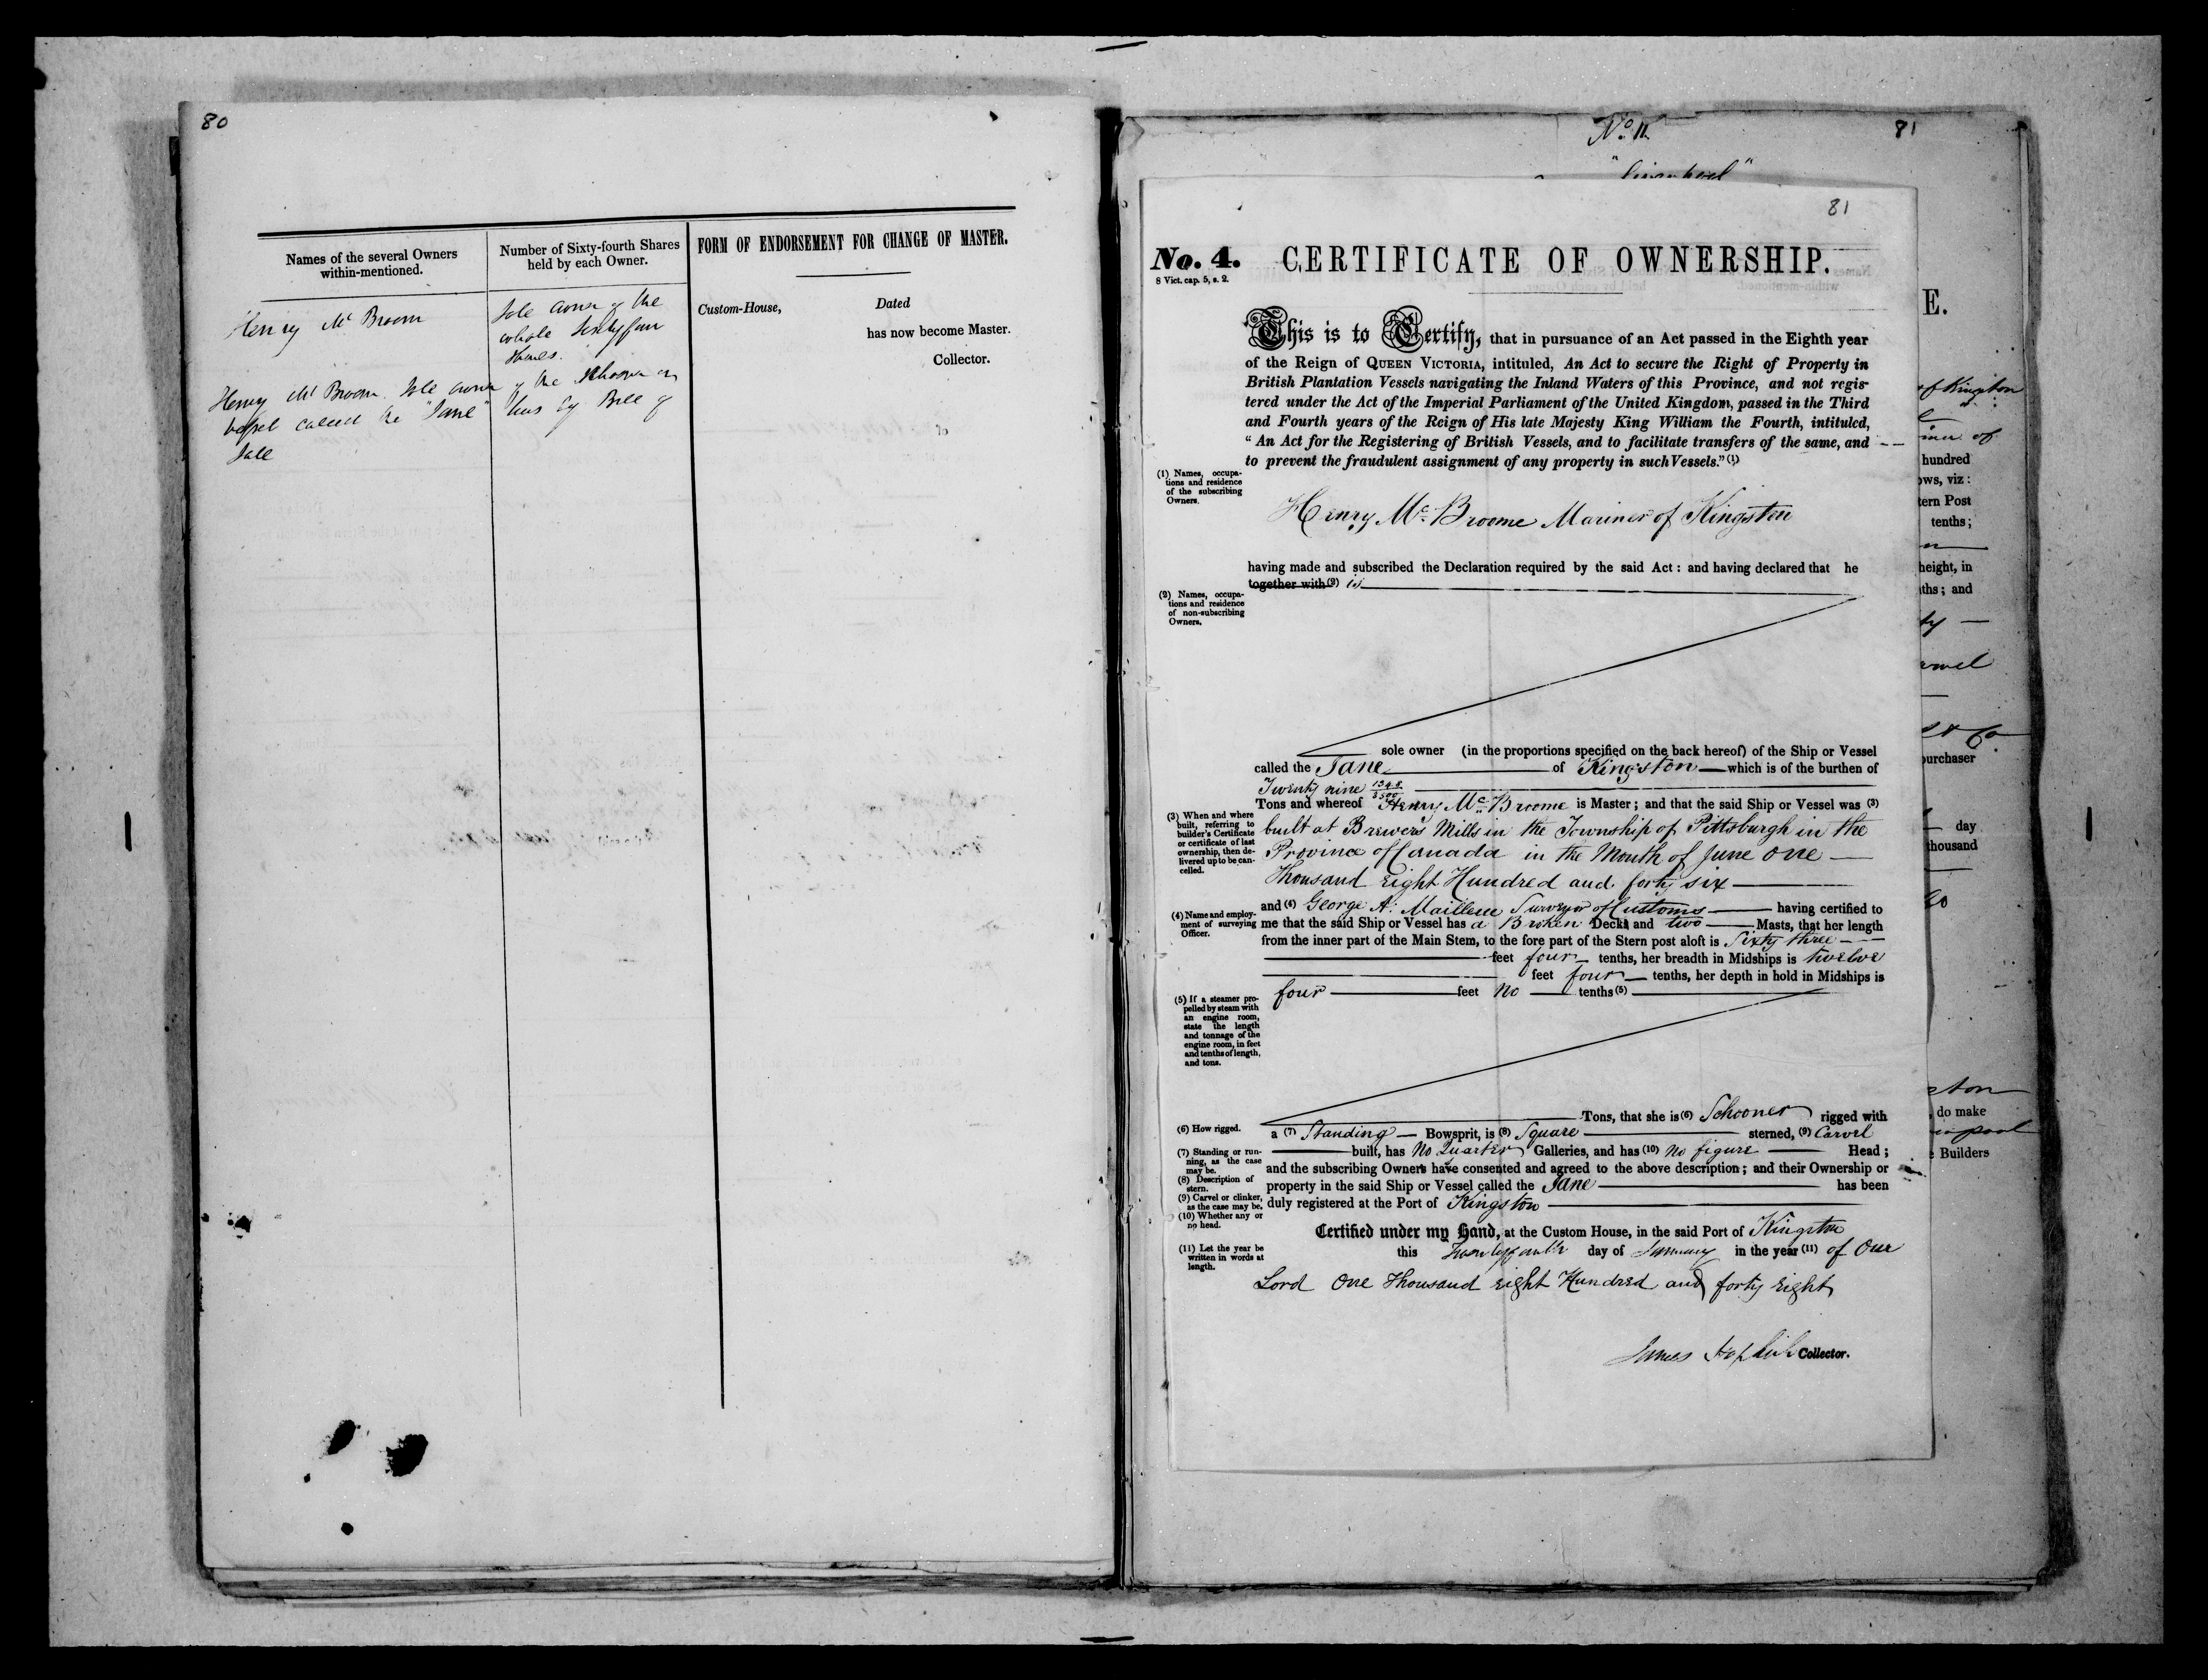 80
Names of the several Owners
within-mentioned.
Number of Sixty-fourth Shares
held by each Owner.
FORM OF ENDORSEMENT FOR CHANGE OF MASTER.
Custom-House,
Dated
has now become Master.
Collector.
Henry Mc Broom
Sole owner of the
whole Sixty four
Shares.
Henry Mc Broom Sole owner of the Schooner or
vessel called the "Jane" thus by Bill of
Sale
No. 11
81
"Liverpool"
81
No. 4. CERTIFICATE OF OWNERSHIP.
8 Vict. cap. 5, s. 2.
This is to Certify, that in pursuance of an Act passed in the Eighth year
of the Reign of QUEEN VICTORIA, intituled, An Act to secure the Right of Property in
British Plantation Vessels navigating the Inland Waters of this Province, and not regis-
tered under the Act of the Imperial Parliament of the United Kingdom, passed in the Third
and Fourth years of the Reign of His late Majesty King William the Fourth, intituled,
"An Act for the Registering of British Vessels, and to facilitate transfers of the same, and
to prevent the fraudulent assignment of any property in such Vessels." (1)
(1) Names, occupa-
tions and residence
of the subscribing
Owners.
Henry Mc Broome Mariner of Kingston
having made and subscribed the Declaration required by the said Act: and having declared that he
together with (2) is
(2) Names, occupa-
tions and residence
of non-subscribing
Owners.
sole owner (in the proportions specified on the back hereof) of the Ship or Vessel
called the Jane of Kingston which is of the burthen of
Twenty nine 1348/3500
Tons and whereof Henry Mc Broome is Master; and that the said Ship or Vessel was (3)
(3) When and where
built, referring to
builder's Certificate
or certificate of last
ownership, then de-
livered up to be can-
celled.
built at Brewers Mills in the Township of Pittsburgh in the
Province of Canada in the Month of June One
Thousand Eight Hundred and forty six
and (4) George A. Mailleue Surveyor of Customs having certified to
(4) Name and employ-
ment of surveying
Officer.
me that the said Ship or Vessel has a Broken Decks and two Masts, that her length
from the inner part of the Main Stem, to the fore part of the Stern post aloft is Sixty three
feet four tenths, her breadth in Midships is twelve
feet four tenths, her depth in hold in Midships is
four feet No tenths (5)
(5) If a steamer pro-
pelled by steam with
an engine room,
state the length
and tonnage of the
engine room, in feet
and tenths of length,
and tons.
Tons, that she is (6) Schooner rigged with
(6) How rigged.
a (7) Standing Bowsprit, is (8) Square sterned, (9) Carvel
built, has No Quarter Galleries, and has (10) No figure Head;
(7) Standing or run-
ning, as the case
may be.
(8) Description of
stern.
(9) Carvel or clinker,
as the case may be.
(10) Whether any or
no head.
and the subscribing Owners have consented and agreed to the above description; and their Ownership or
property in the said Ship or Vessel called the Jane has been
duly registered at the Port of Kingston
Certified under my Hand, at the Custom House, in the said Port of Kingston
this day of January in the year (11) of Our
(11) Let the year be
written in words at
length.
Lord One Thousand Eight Hundred and forty Eight
James Hopkirk Collector.
E.
of Kingston
of
hundred
ows, viz:
tern Post
tenths;
height, in
ths; and
& Co
purchaser
day
thousand
do make
Builders